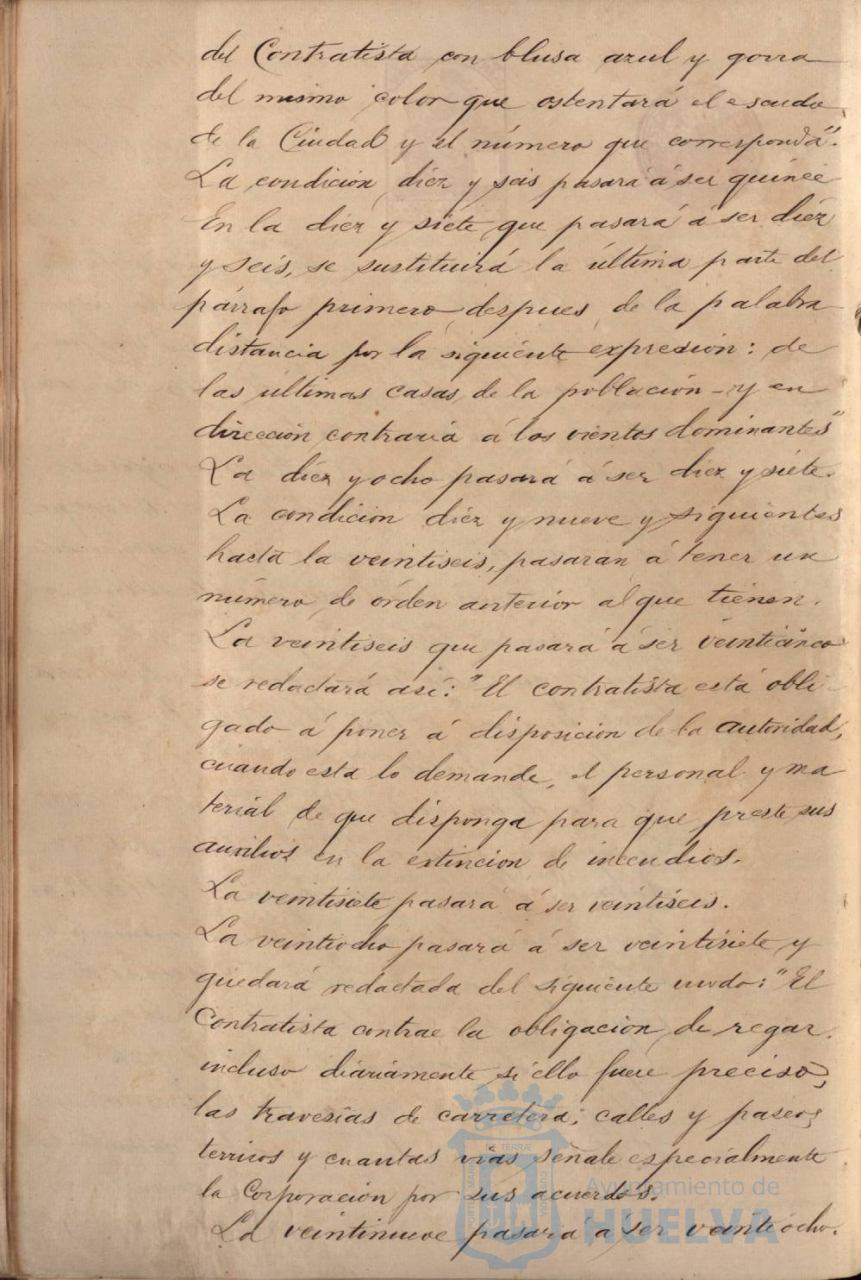 del Contratista con blusa azul y gorra
del mismo color que ostentará el escudo
de la Ciudad y el número que corresponda".
La condición diez y seis pasará á ser quince
En la diez y siete, que pasará á ser diez
y seis, se sustituirá la última parte del
párrafo primero despues de la palabra
distancia por la siguiente expresion: de
las últimas casas de la poblacion y en
dirección contraria á los vientos dominantes"
La diez y ocho pasará á ser diez y siete.
La condicion diez y nueve y siguientes
hasta la veintiseis, pasaran á tener un
número de órden anterior al que tienen.
La veintiseis que pasará á ser veinticinco
se redactará así: "El contratista está obli
gado á poner á disposicion de la autoridad,
cuando esta lo demande, el personal y ma
terial de que disponga para que preste sus
auxilios en la extincion de incendios.
La veintisiete pasará á ser veintiseis.
La veintiocho pasará á ser veintisiete y
quedará redactada del siguiente modo: "El
Contratista contrae la obligacion de regar
incluso diariamente si ello fuere preciso,
las travesías de carretera, calles y paseos
terrizos y cuantas vias señale especialmente
la Corporacion por sus acuerdos.
La veintinueve pasará á ser veintiocho.
Ayuntamiento de
HUELVA